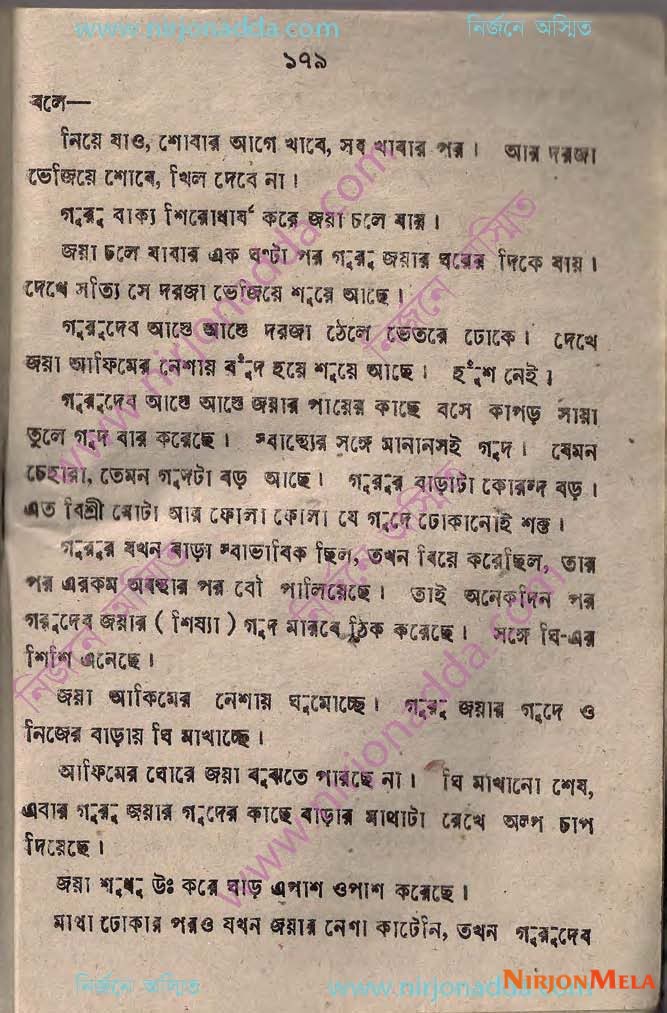 www.nirjonadda.com নির্জনে অস্মিত
১৭৯
বলে—
নিয়ে যাও, শোবার আগে খাবে, সব খাবার পর। আর দরজা
ভেজিয়ে শোবে, খিল দেবে না।
গুরু বাক্য শিরোধার্য করে জয়া চলে যায়।
জয়া চলে যাবার এক ঘণ্টা পর গুরু জয়ার ঘরের দিকে যায়।
দেখে সত্যি সে দরজা ভেজিয়ে শুয়ে আছে।
গুরুদেব আস্তে আস্তে দরজা ঠেলে ভেতরে ঢোকে। দেখে
জয়া আফিমের নেশায় বুঁদ হয়ে শুয়ে আছে। হুঁশ নেই।
গুরুদেব আস্তে আস্তে জয়ার পায়ের কাছে বসে কাপড় সায়া
তুলে গুদ বার করেছে। স্বাস্থ্যের সঙ্গে মানানসই গুদ। যেমন
চেহারা, তেমন গুদটা বড় আছে। গুরুর বাড়াটা কোরন্দ বড়।
এত বিশ্রী মোটা আর ফোলা ফোলা যে গুদে ঢোকানোই শক্ত।
গুরুর যখন বাড়া স্বাভাবিক ছিল, তখন বিয়ে করেছিল, তার
পর এরকম অবস্থার পর বৌ পালিয়েছে। তাই অনেকদিন পর
গরুদেব জয়ার (শিষ্যা) গুদ মারবে ঠিক করেছে। সঙ্গে ঘি-এর
শিশি এনেছে।
জয়া আফিমের নেশায় ঘুমোচ্ছে। গুরু জয়ার গুদে ও
নিজের বাড়ায় ঘি মাখাচ্ছে।
আফিমের ঘোরে জয়া বুঝতে পারছে না। ঘি মাখানো শেষ,
এবার গুরু জয়ার গুদের কাছে বাড়ার মাথাটা রেখে অল্প চাপ
দিয়েছে।
জয়া শুধু উঃ করে ঘাড় এপাশ ওপাশ করেছে।
মাথা ঢোকার পরও যখন জয়ার নেশা কাটেনি, তখন গুরুদেব
নির্জনে অস্মিত www.nirjonadda.com
NIRJONMELA